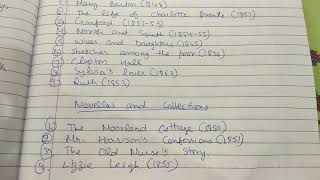 1) Mary Barton (1848)
2) The life of Charlotte Bronte (1857)
3) Cranford (1851-53)
4) North and South (1854-55)
5) Wives and Daughters (1865)
6) Sketches among the poor (1836)
7) Clopton Hall
8) Sylvia's lover (1863)
9) Ruth (1853)
Novellas and Collections
1) The Moorland Cottage (1850)
2) Mr. Harrison's Confessions (1851)
3) The Old Nurse's Story
4) Lizzie Leigh (1855)